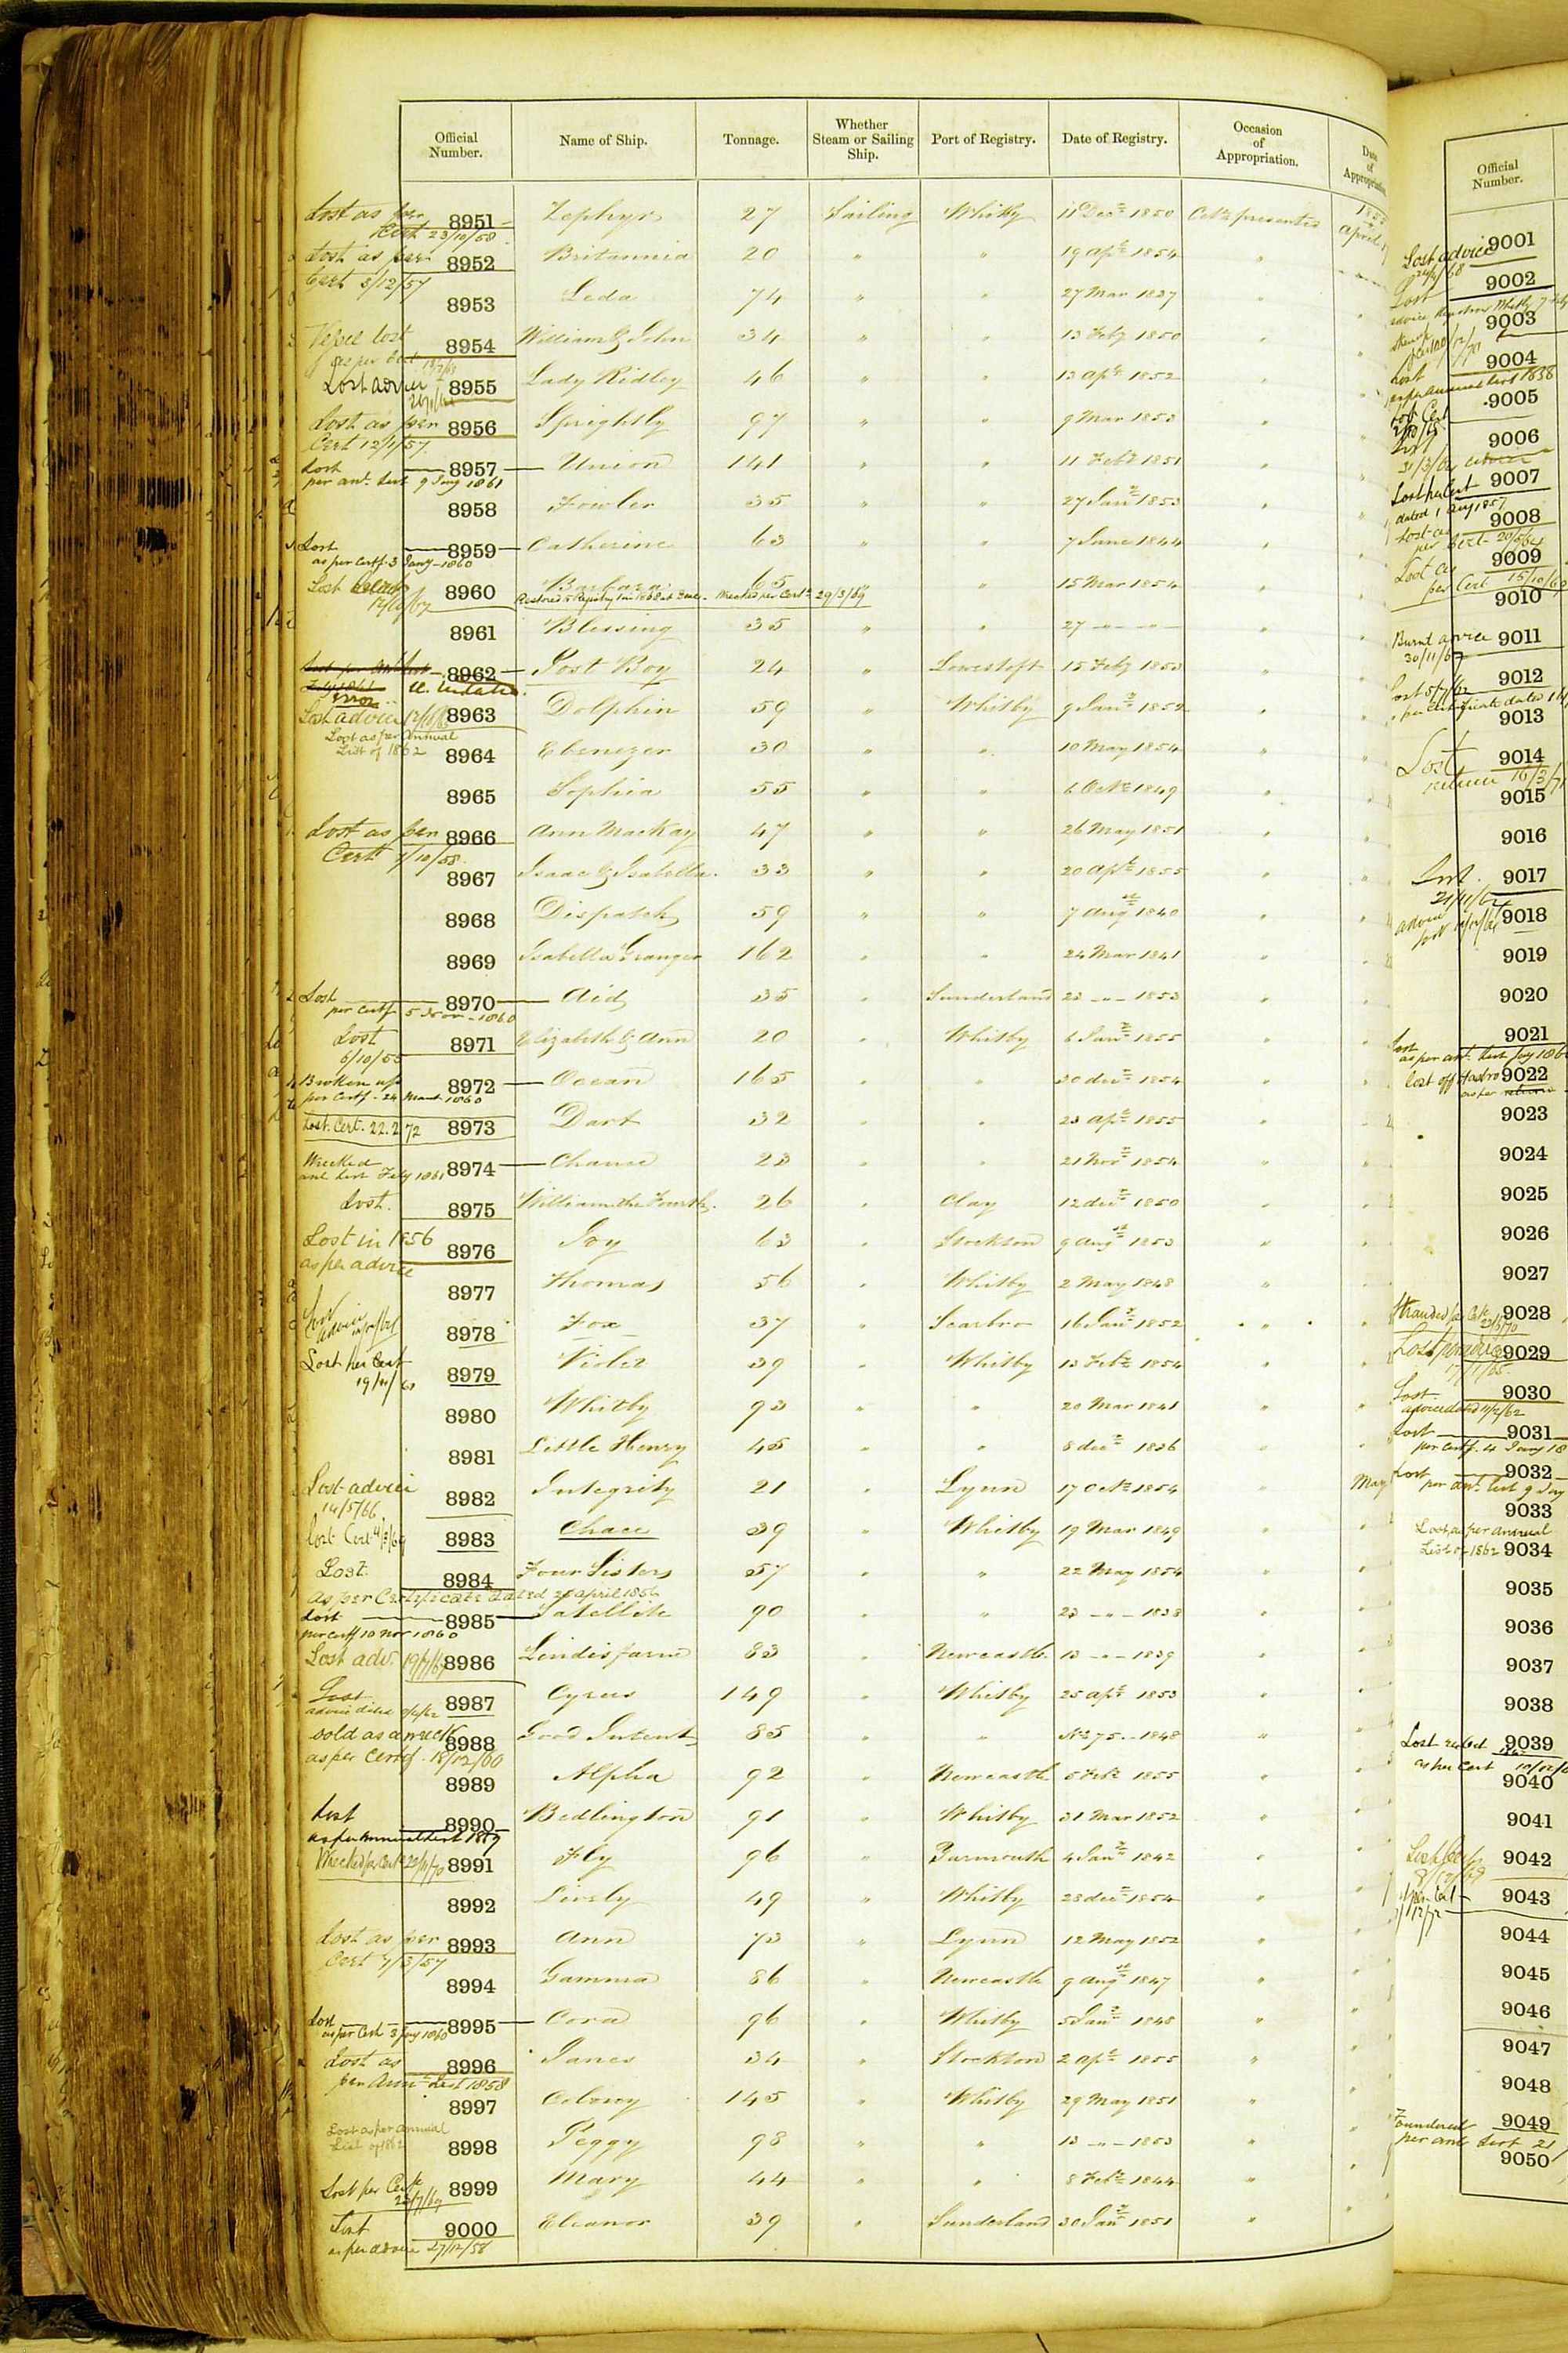 Official Number. Name of Ship. Tonnage. Whether Steam or Sailing Ship. Port of Registry. Date of Registry. Occasion of Appropriation. Date of Appropriation
Lost as per Cert 23/10/58 8951 Zephyr 27 Sailing Whitby 11 Decr 1850 Certe presented April
Lost as per Cert 8/12/57 8952 Britannia 20 " " 19 Apl 1854 "
8953 Leda 74 " " 27 Mar 1837 "
lost as per Cert 8954 William & John 34 " " 13 Feby 1850 "
Lost advice 8955 Lady Ridley 46 " " 13 Apl 1852 "
Lost as per Cert 12/1/57 8956 Sprightly 97 " " 9 Mar 1853 "
Lost per anl. List 9 Jany 1861 8957 Union 141 " " 11 Feby 1851 "
8958 Fowler 35 " " 27 Jany 1853 "
Lost as per Certf. 3 Jany 1860 8959 Catherine 63 " " 7 June 1844 "
Lost 8960 Barbara 65 " " 15 Mar 1854 "
Wrecked per Certe 29/3/69
8961 Blessing 35 " " 27 - " - "
8962 Post Boy 24 " Lowestoft 15 Feby 1853 "
Error
Lost advice 8963 Dolphin 59 " Whitby 9 Jany 1852 "
Lost as per Annual List of 1862 8964 Ebenezer 30 " " 10 May 1854 "
8965 Sophia 55 " " 6 Octr 1849 "
Lost as per Cert 7/10/58 8966 Ann MacKay 47 " " 26 May 1851 "
8967 Isaac & Isabella 33 " " 20 Apl 1855 "
8968 Dispatch 59 " " 7 Augst 1840 "
8969 Isabella Granger 162 " " 24 Mar 1841 "
Lost per Certf 5 Nov 1860 8970 Aid 35 " Sunderland 23 - " - 1853 "
Lost 8971 Elizabeth & Ann 20 " Whitby 6 Jany 1855 "
Broken up per Certf. 24 March 1860 8972 Ocean 165 " " 30 decr 1854 "
Lost. Cert. 22.2.72 8973 Dart 32 " " 23 Apl 1855 "
Wrecked anl List Feby 1861 8974 Chance 23 " " 21 Novr 1854 "
Lost. 8975 William the Fourth 26 " Clay 12 decr 1850 "
Lost in 1856 as per advice 8976 Joy 63 " Stockton 9 Augst 1853 "
8977 Thomas 56 " Whitby 2 May 1848 "
Lost advice 8978 Fox 37 " Scarbro 16 Jany 1852 "
Lost per Cert 8979 Violet 39 " Whitby 13 Feby 1854 "
8980 Whitby 93 " " 20 Mar 1841 "
8981 Little Henry 45 " " 8 decr 1836 "
Lost advice 14/5/66 8982 Integrity 21 " Lynn 17 Octr 1854 " May
Lost Cert 8983 Chace 39 " Whitby 19 Mar 1849 "
Lost. as per Certificate dated 25 April 1856 8984 Four Sisters 57 " " 22 May 1854 "
Lost per Certf 10 Nov 1860 8985 Satellite 90 " " 23 - " - 1838 "
Lost adv. 8986 Lindisfarne 83 " Newcastle 13 - " - 1839 "
Lost advice 8987 Cyrus 149 " Whitby 25 Apl 1853 "
sold as a wreck as per Certf. 18/12/60 8988 Good Intent 85 " " No 75 - 1848 "
8989 Alpha 92 " Newcastle 5 Feby 1855 "
Lost as per Annual List 8990 Bedlington 91 " Whitby 31 Mar 1852 "
Wrecked per Cert 8991 Fly 96 " Yarmouth 4 Jany 1842 "
8992 Lively 49 " Whitby 28 decr 1854 "
Lost as per Cert 7/3/57 8993 Ann 73 " Lynn 12 May 1852 "
8994 Gamma 86 " Newcastle 9 Augst 1847 "
Lost as per Cert 3 Jany 1860 8995 Cora 96 " Whitby 5 Jany 1848 "
Lost as per Annl List 1858 8996 Janes 34 " Stockton 2 Apl 1855 "
8997 Colony 145 " Whitby 29 May 1851 "
Lost as per Annual List of 1862 8998 Peggy 98 " " 13 - " - 1853 "
Lost per Cert 8999 Mary 44 " " 8 Feby 1844 "
Lost as per advice 27/12/58 9000 Eleanor 39 " Sunderland 30 Jany 1851 "
Official Number.
Lost advice 9001
Lost 9002
9003
Lost as per annual List 1858 9004
Lost Cert 9005
9006
Lost per Cert dated 1 Augt 1857 9007
Lost as per Cert. 9008
Lost as per Cert 9009
9010
Burnt advice 30/11/67 9011
Lost per certificate dated 9012
9013
Lost 9014
9015
9016
Lost 9017
advice 9018
9019
9020
Lost as per anl. List 9021
lost off 9022
9023
9024
9025
9026
9027
Stranded 9028
Lost 9029
Lost advice dated 9030
Lost per Certf. 4 Jany 9031
Lost per anl. List 9 Jany 9032
9033
Lost as per annual List of 1862 9034
9035
9036
9037
9038
Lost as per Cert 9039
9040
9041
9042
9043
9044
9045
9046
9047
9048
Foundered per anl List 21 9049
9050